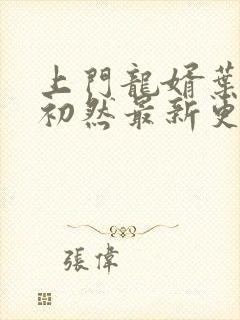 上門龍婿葉
初然最新更
張偉